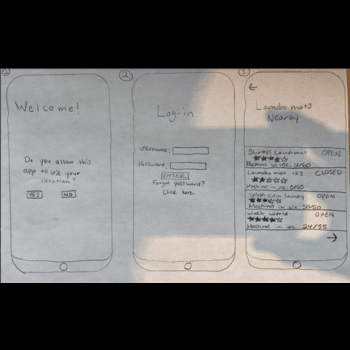 1
Welcome!
Do you allow this
app to use your
location?
YES NO
2.
Log-in
Username:
Password:
ENTER
Forgot password?
Click here
3
Laundromats
Nearby
Laundromat 123 CLOSED
Machines in use: 0/60
Splash Coin Laundry OPEN
Machines in use 30/50
Wash World OPEN
Machines in use 24/55